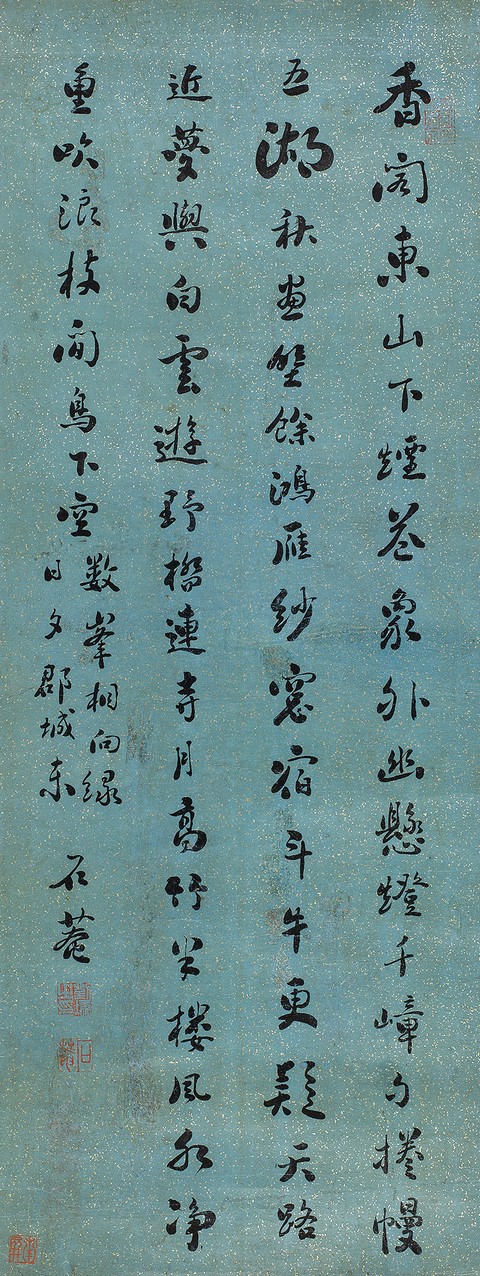 香閣東山下煙花象外幽懸燈千嶂夕捲幔
五湖秋畫壁餘鴻雁紗窻宿斗牛更疑天路
近夢與白雲遊野橋連寺月高竹半樓風水淨
魚吹浪枝閒鳥下空
數峯相向綠
日夕郡城東
石菴